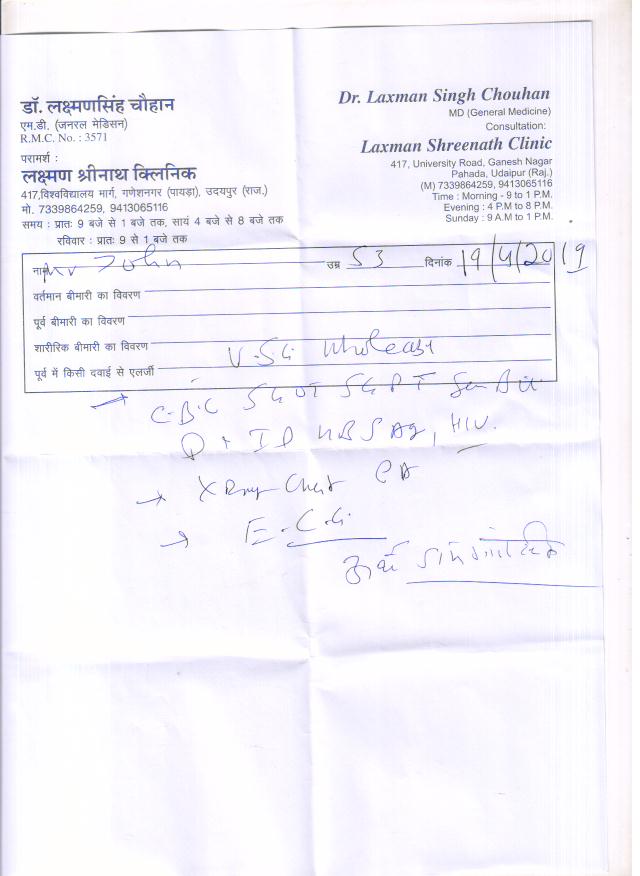 डॉ. लक्ष्मणसिंह चौहान
एम.डी. (जनरल मेडिसन)
R.M.C. No. : 3571
परामर्श :
लक्ष्मण श्रीनाथ क्लिनिक
417,विश्वविद्यालय मार्ग, गणेशनगर (पायड़ा), उदयपुर (राज.)
मो. 7339864259, 9413065116
समय : प्रातः 9 बजे से 1 बजे तक, सायं 4 बजे से 8 बजे तक
रविवार : प्रातः 9 से 1 बजे तक
Dr. Laxman Singh Chouhan
MD (General Medicine)
Consultation:
Laxman Shreenath Clinic
417, University Road, Ganesh Nagar
Pahada, Udaipur (Raj.)
(M) 7339864259, 9413065116
Time : Morning - 9 to 1 P.M.
Evening : 4 P.M to 8 P.M.
Sunday : 9 A.M to 1 P.M.
नाम Mr John उम्र 53 दिनांक 19/4/2019
वर्तमान बीमारी का विवरण
पूर्व बीमारी का विवरण
शारीरिक बीमारी का विवरण
U.S.G.
पूर्व में किसी दवाई से एलर्जी
C.B.C SGOT SGPT
HBSAg, HIV.
X Ray Chest PA
E.C.G.